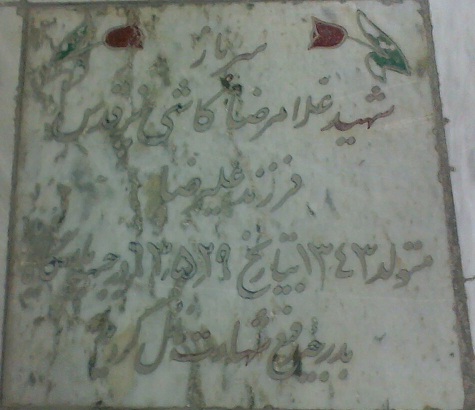 سرباز
شهید غلامرضا کاشی
فرزند علیرضا
متولد ۱۳٤۳ بتاریخ
بدرجه رفیع شهادت نائل گردید